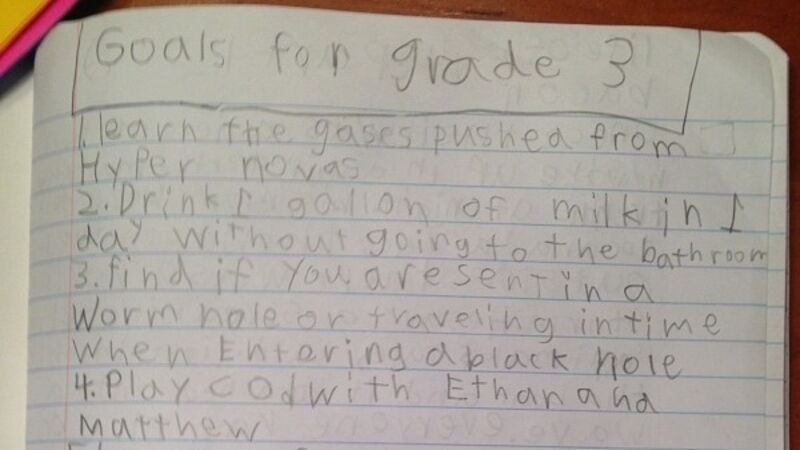 Goals for grade 3
1. learn the gases pushed from
Hyper novas
2. Drink 1 gallon of milk in 1
day without going to the bathroom
3. find if you are sent in a
Worm hole or traveling in time
When Entering a black hole
4. Play COD with Ethan and
Matthew